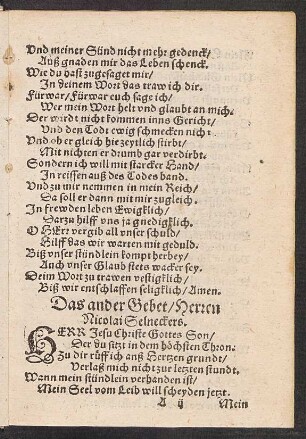 Vnd meiner Sünd nicht mehr gedenck/
Auß gnaden mir das Leben schenck.
Wie du hast zugesaget mir/
In deinem Wort das traw ich dir.
Fürwar/Fürwar euch sage ich/
Wer mein Wort helt vnd glaubt an mich.
Der wirdt nicht kommen inns Gericht/
Vnd den Todt ewig schmecken nicht.
Vnd ob er gleich hie zeytlich stirbt/
Mit nichten er drumb gar verdirbt.
Sondern ich will mit starcker Hand/
In reissen auß des Todes band.
Vnd zu mir nemmen in mein Reich/
Da soll er dann mit mir zugleich.
In frewden leben Ewigklich/
Darzu hilff vns ja gnedigklich.
O HErr vergib all vnser schuld/
Hilff das wir warten mit geduld.
Biß vnser stündlein kompt herbey/
Auch vnser Glaub stets wacker sey.
Deim Wort zu trawen vestigklich/
Biß wir entschlaffen seligklich/Amen.
Das ander Gebet/Herren
Nicolai Selneckers.
HERR Jesu Christe Gottes Son/
Der du sitzt in dem höchsten Thron.
Zu dir rüff ich auß Hertzen grundt/
Verlaß mich nicht zur letzten stundt.
Wann mein stündlein verhanden ist/
Mein Seel vom Leib will scheyden jetzt.
A ij Mein